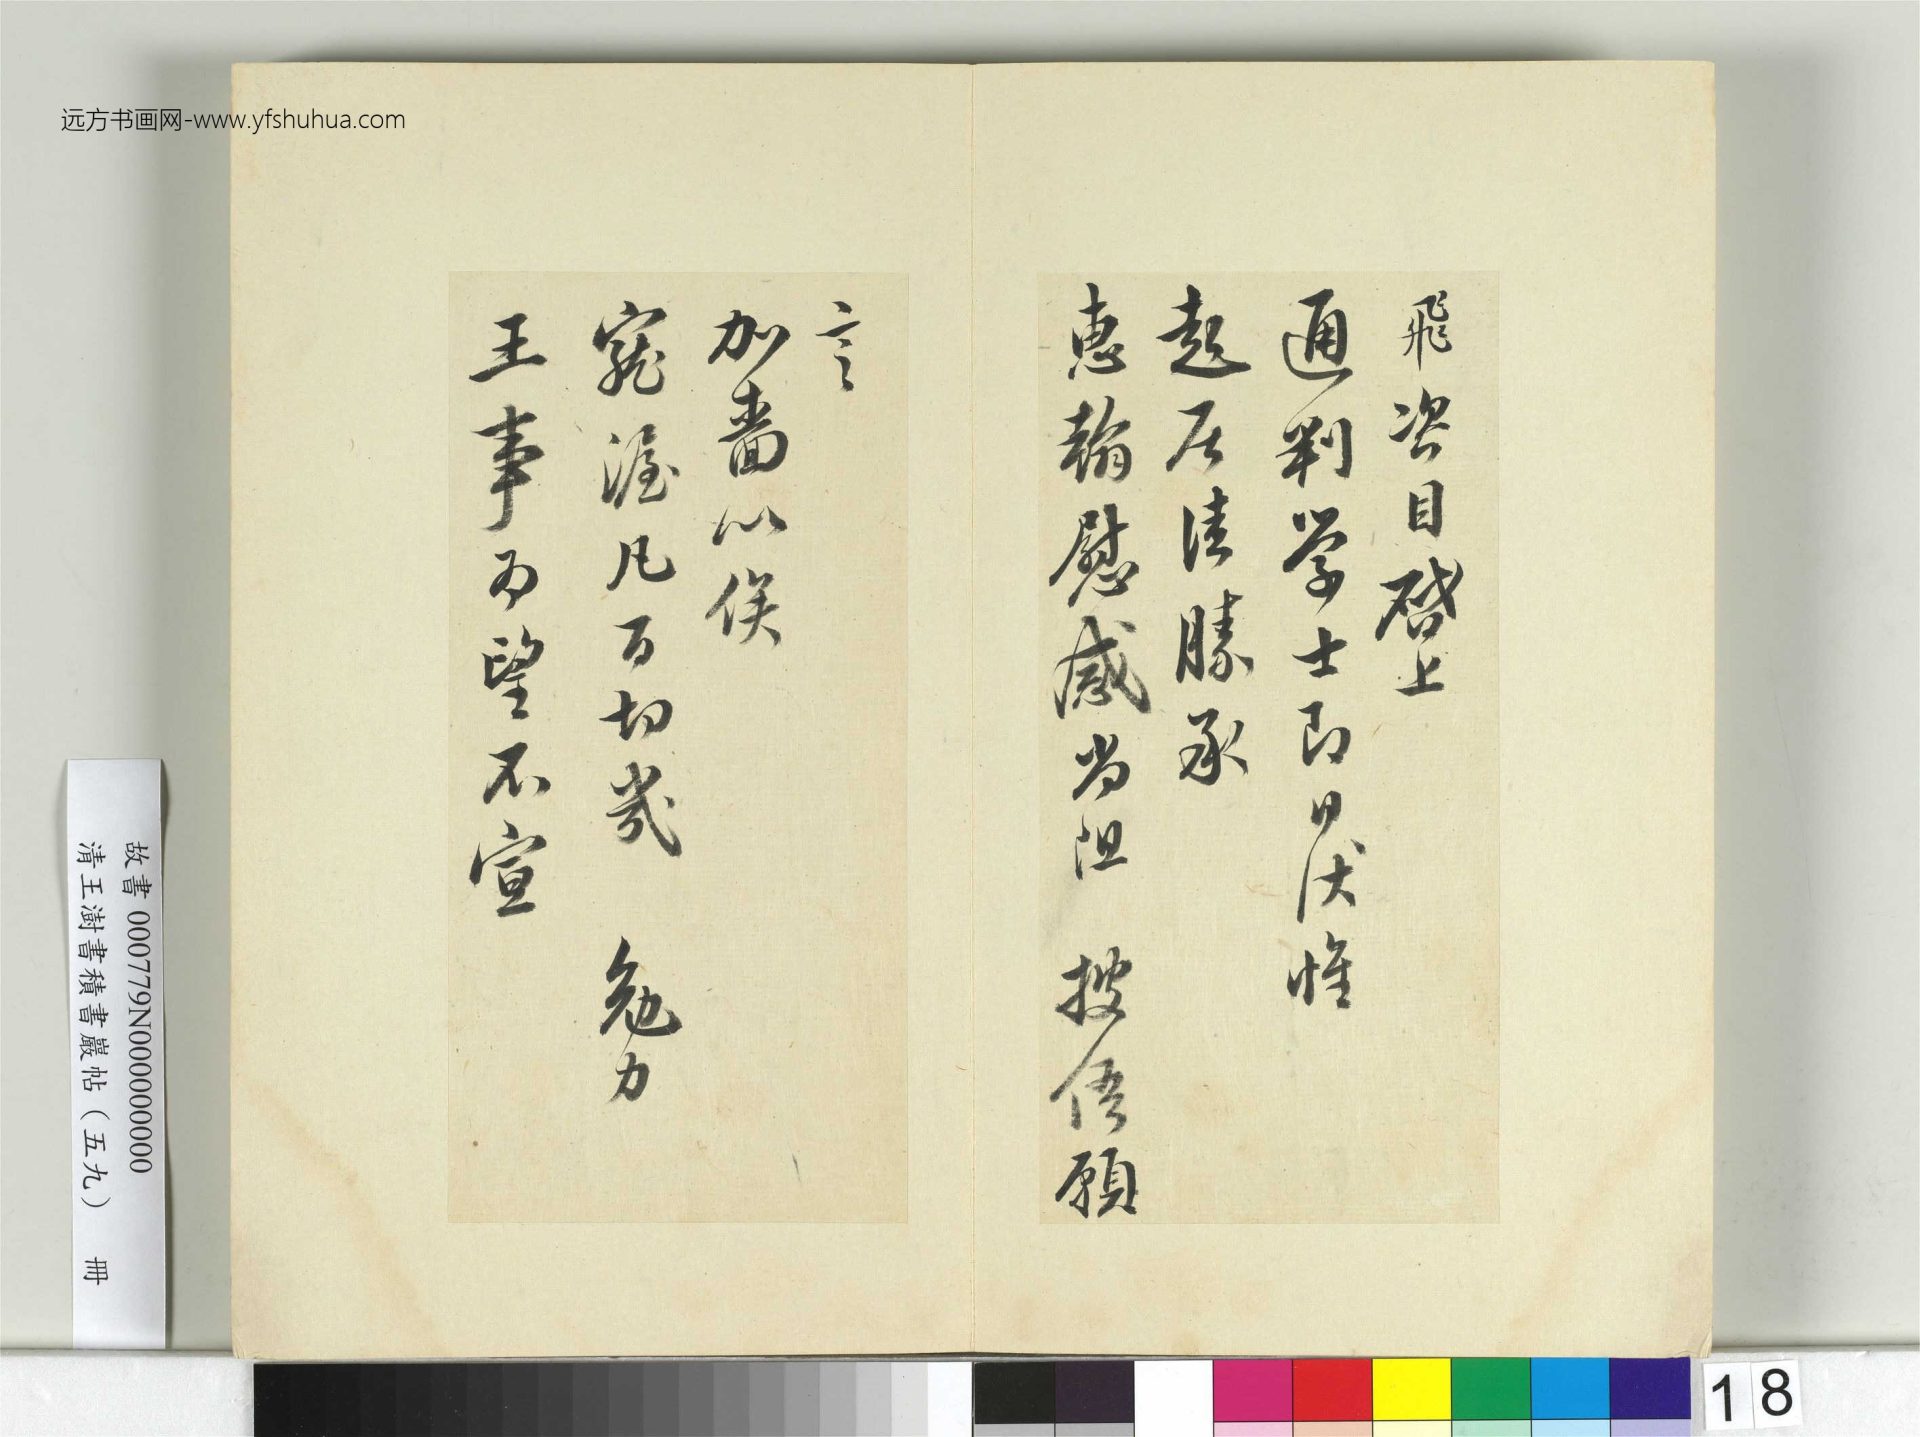 远方书画网-www.yfshuhua.com
飛咨目啓上
通判学士即日伏惟
起居清勝承
惠翰慰感尚阻 披悟願
言
加嗇以俟
寵渥凡百切幾 勉力
王事為望不宣
故書 000779N000000000
清王澍書積書巖帖（五九） 冊
18